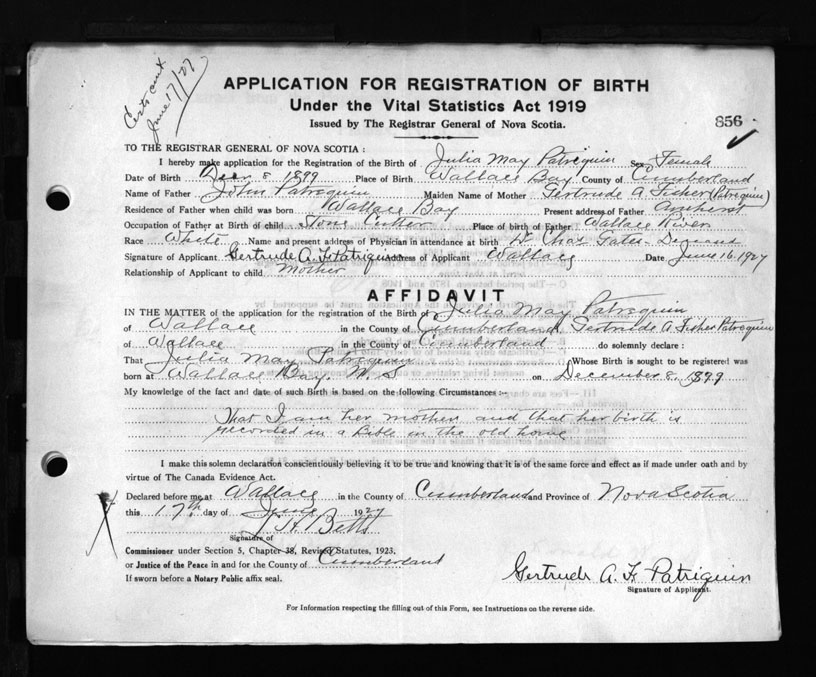 Certs cent
June 17/27
APPLICATION FOR REGISTRATION OF BIRTH
Under the Vital Statistics Act 1919
Issued by The Registrar General of Nova Scotia.
856
TO THE REGISTRAR GENERAL OF NOVA SCOTIA :
I hereby make application for the Registration of the Birth of Julia May Patriquin Sex Female
Date of Birth Decr 8 1899 Place of Birth Wallace Bay County of Cumberland
Name of Father John Patriquin Maiden Name of Mother Gertrude A Fisher (Patriquin)
Residence of Father when child was born Wallace Bay Present address of Father Amherst
Occupation of Father at Birth of child Stone Cutter Place of birth of Father Wallace River
Race White Name and present address of Physician in attendance at birth Dr Chas
Signature of Applicant Gertrude A. F. Patriquin Address of Applicant Wallace Date June 16. 1927
Relationship of Applicant to child Mother
AFFIDAVIT
IN THE MATTER of the application for the registration of the Birth of Julia May Patriquin
of Wallace in the County of Cumberland, Gertrude A. Fisher Patriquin
of Wallace in the County of Cumberland do solemnly declare :
That Julia May Patriquin Whose Birth is sought to be registered was
born at Wallace Bay. N. S on December 8. 1899
My knowledge of the fact and date of such Birth is based on the following Circumstances :-
That I am her mother and that her birth is
recorded in a Bible in the old home
I make this solemn declaration conscientiously believing it to be true and knowing that it is of the same force and effect as if made under oath and by
virtue of The Canada Evidence Act.
Declared before me at Wallace in the County of Cumberland and Province of Nova Scotia
this 17th day of June 1927
J. H. Betts
Signature of
Commissioner under Section 5, Chapter 38, Revised Statutes, 1923.
or Justice of the Peace in and for the County of Cumberland
If sworn before a Notary Public affix seal.
Gertrude A. F. Patriquin
Signature of Applicant.
For Information respecting the filling out of this Form, see Instructions on the reverse side.